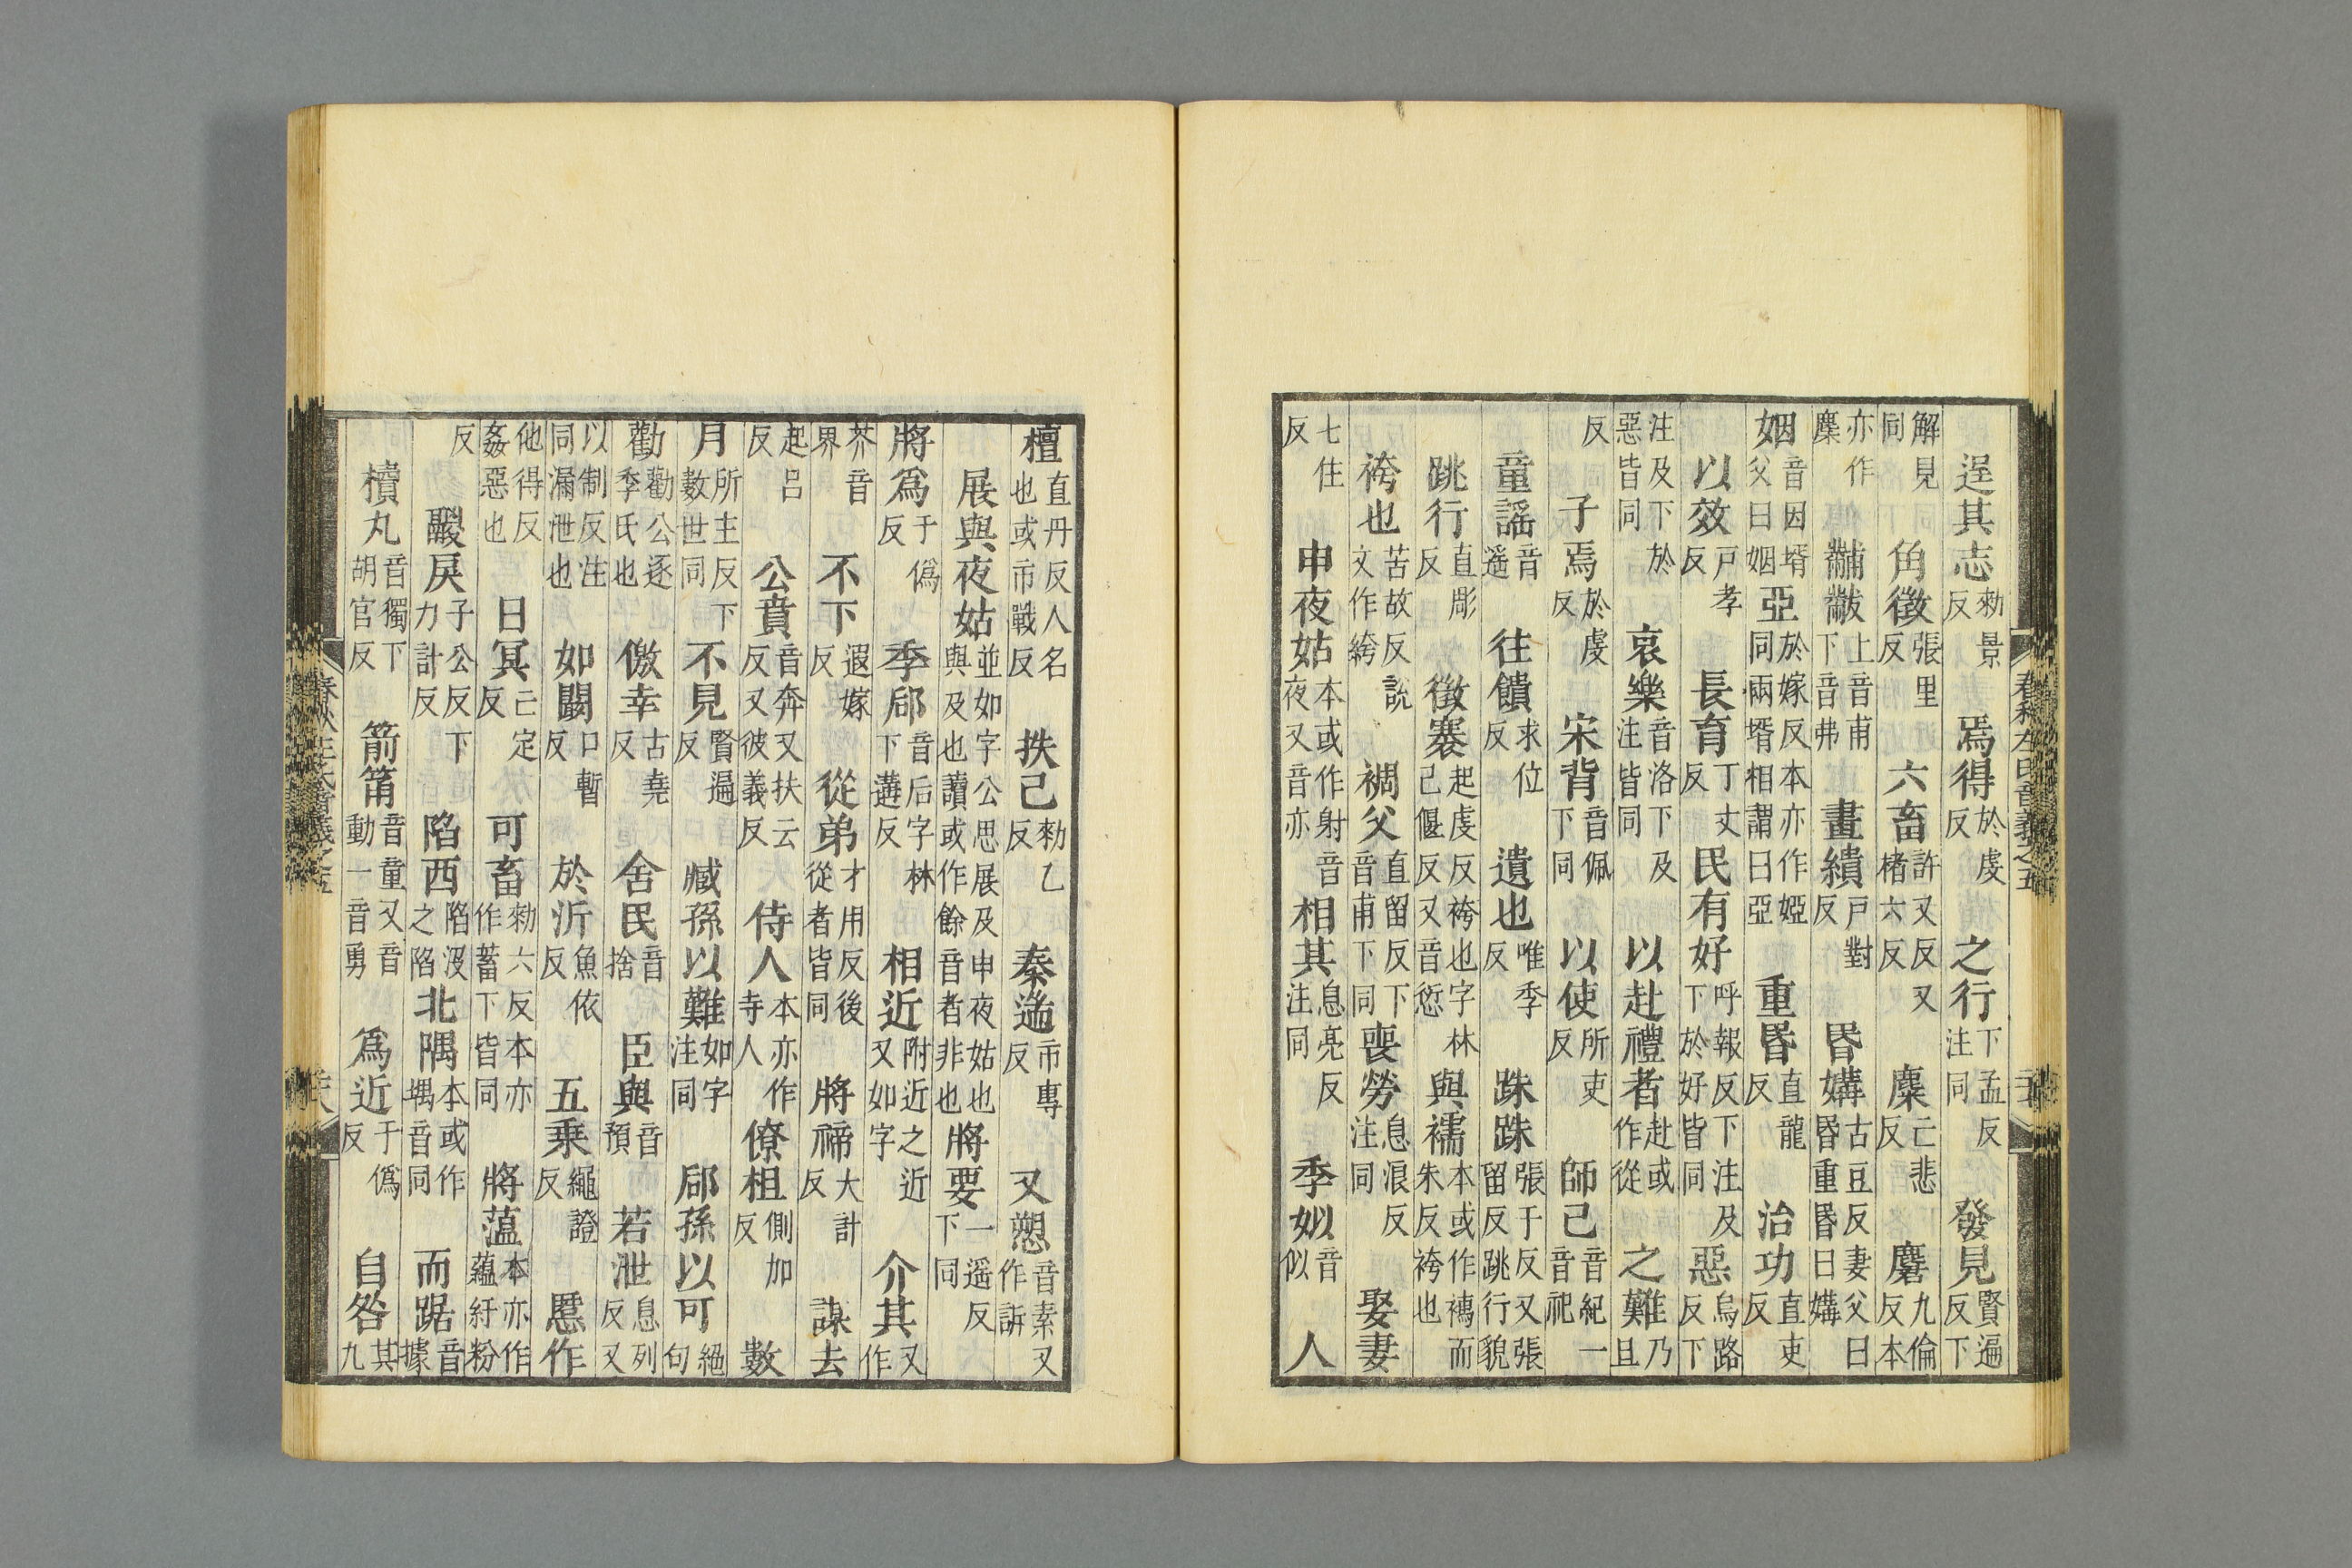 逞其志勑景反　焉得於虔反　之行下孟反注同　發見賢遍反下
解見同　角徵張里反　六畜許又反又楮六反　麋亡悲反　麏九倫反本
亦作麇　黼黻上音甫下音弗　畫繢戶對反　昬媾古豆反妻父曰昬重昬曰媾
姻音因壻父曰姻　亞於嫁反本亦作婭同兩壻相謂曰亞　重昬直龍反　治功直吏反
以效戶孝反　長育丁丈反　民有好呼報反下注及下於好皆同　惡烏路反下
注及下於惡皆同　哀樂音洛下及注皆同　以赴禮者赴或作從　之難乃旦
反　子焉於虔反　宋背音佩下同　以使所吏反　師己音紀一音祀
童謠音遥　往饋求位反　遺也唯季反　跦跦張于反又張留反跳行貌
跳行直彫反　徵褰起虔反袴也字林己偃反又音愆　與襦本或作襦而朱反袴也
袴也苦故反說文作絝　裯父直留反下音甫下同　喪勞息浪反注同　娶妻
七住反　申夜姑本或作射音夜又音亦　相其息亮反注同　季姒音似　人
檀直丹反人名也或市戰反　抶己勑乙反　秦遄市專反　又愬音素又作訴
展與夜姑並如字公思展及申夜姑也與及也讀或作餘音者非也　將要一遥反下同
將爲于僞反　季郈音后字林下遘反　相近附近之近又如字　介其又作
芥音界　不下遐嫁反　從弟才用反後從者皆同　將禘大計反　謀去
起呂反　公賁音奔又扶云反又彼義反　侍人本亦作寺人　僚柤側加反　數
月所主反下數世同　不見賢遍反　臧孫以難如字注同　郈孫以可絕句
勸勸公逐季氏也　儌幸古堯反　舍民音捨　臣與音預　若泄息列反又
以制反注同漏泄也　如闞口暫反　於沂魚依反　五乘繩證反　慝作
他得反姦惡也　日冥亡定反　可畜勑六反本亦作蓄下皆同　將薀本亦作蘊紆粉
反　鬷戾子公反下力計反　陷西陷沒之陷　北隅本或作堣音同　而踞音據
櫝丸音獨下胡官反　箭筩音童又音動一音勇　爲近于僞反　自咎其九